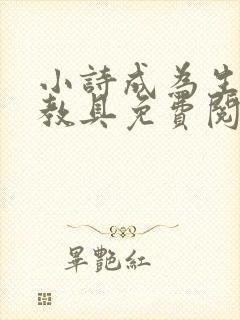 小詩成為生
教具免費閱
畢艷紅